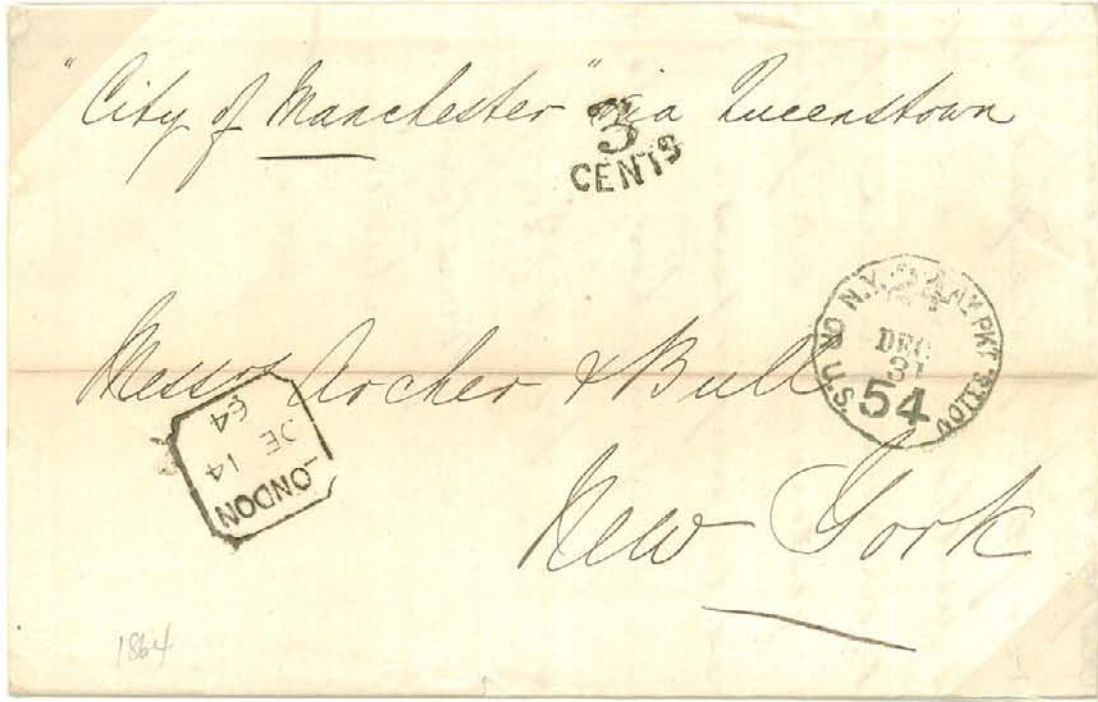 "City of Manchester" via Queenstown
3
CENTS
Messrs Archer & Bull
N.Y. AM. PKT.
DEC
31
54
OR U.S. NOTES.
LONDON
DE 14
64
New York
1864